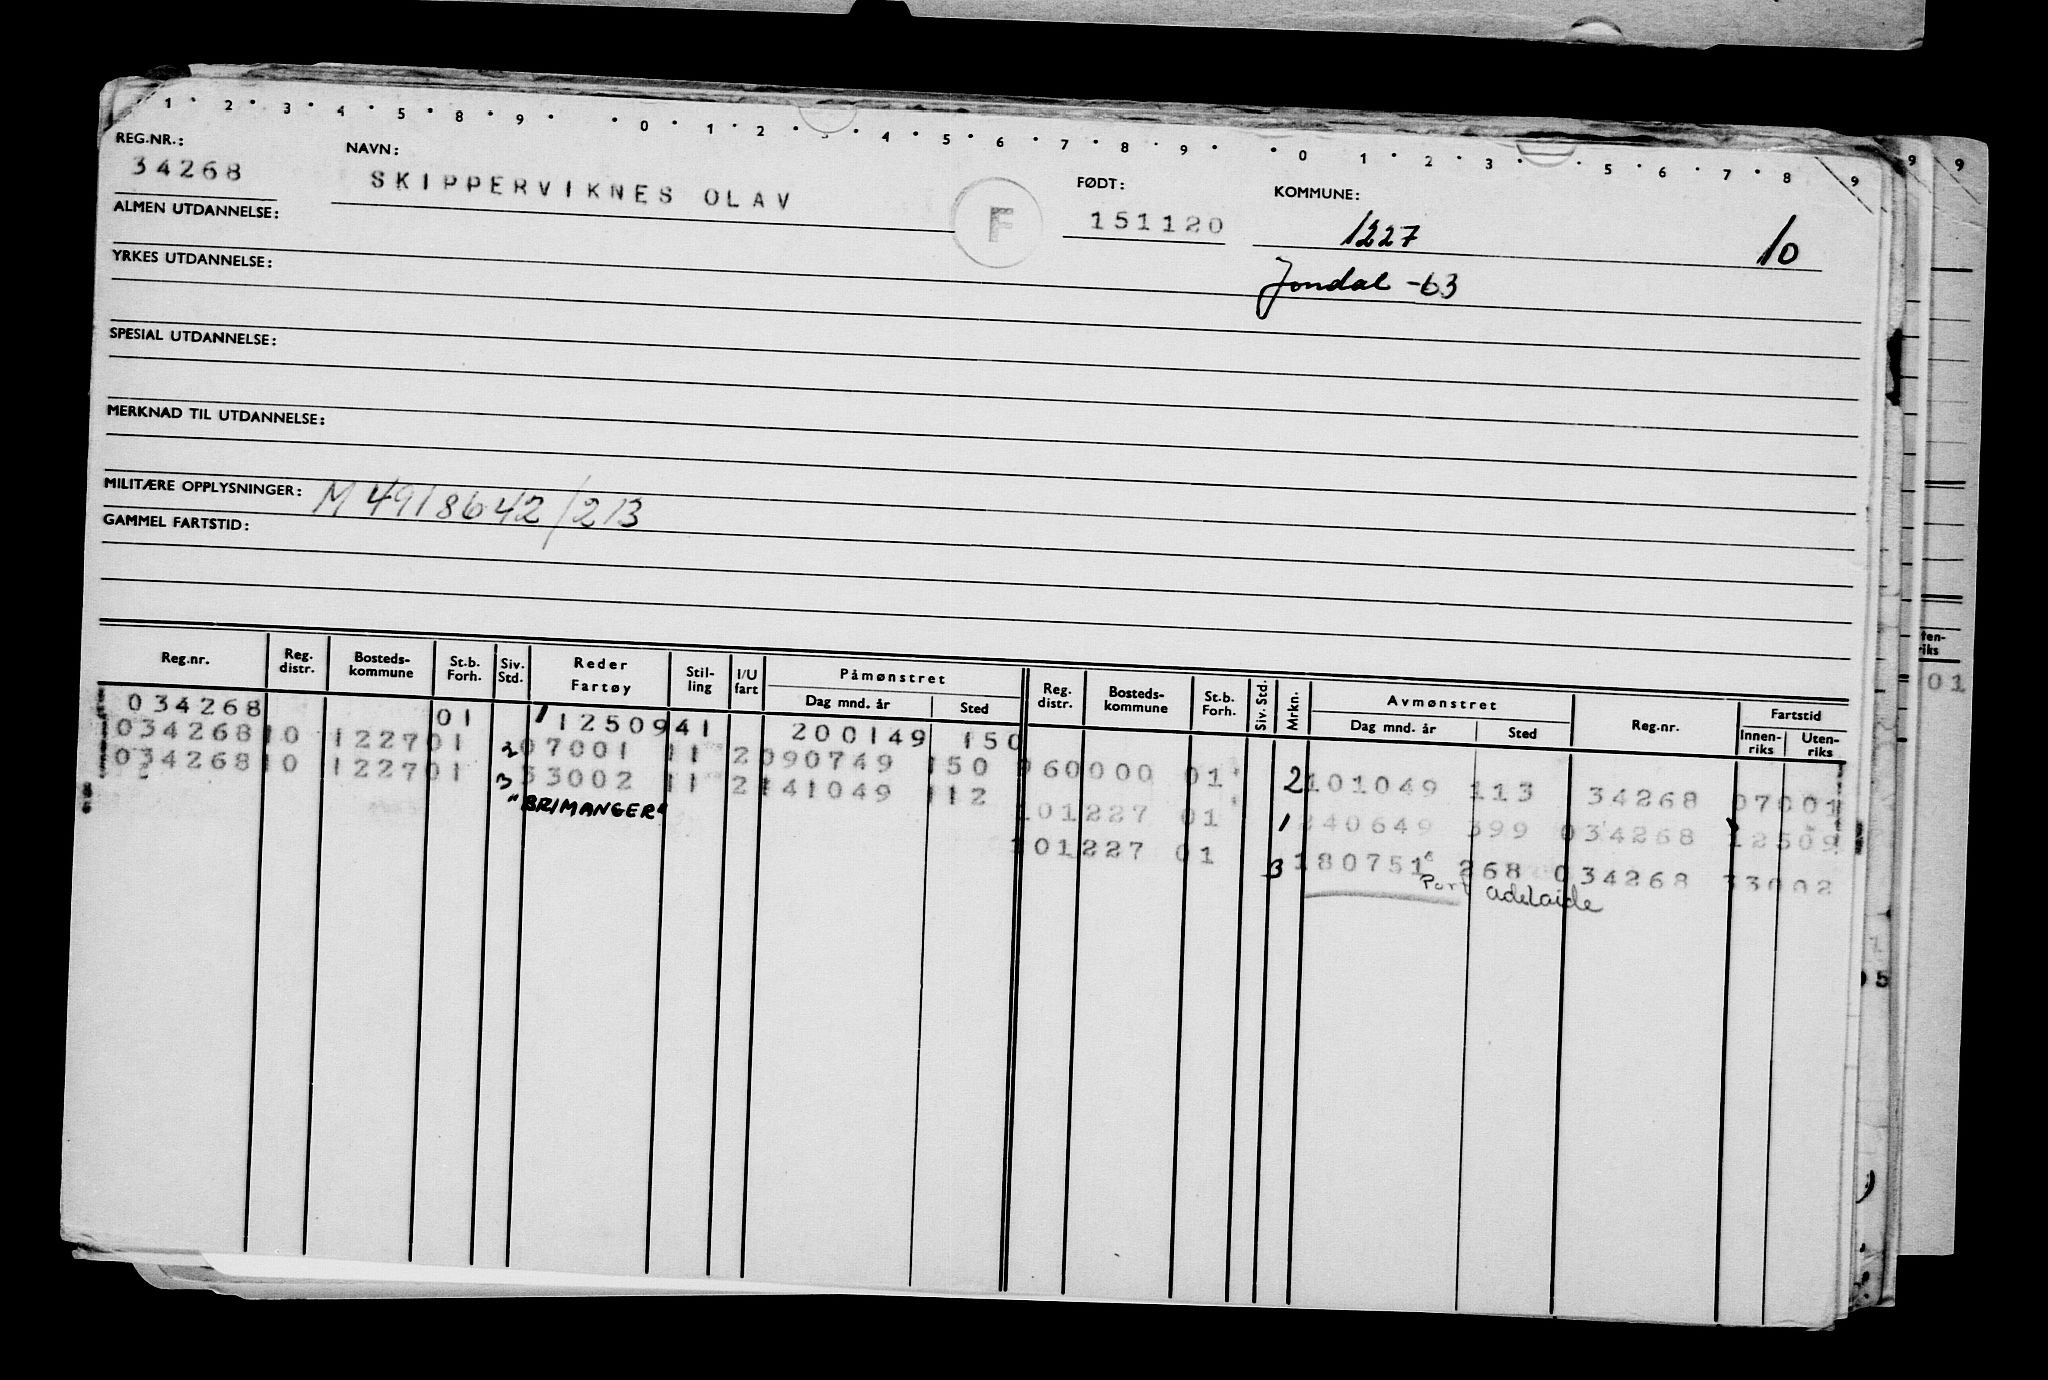 1 2 3 4 5 8 9 0 1 2 3 4 5 6 7 8 9 0 1 2 3 5 6 7 8 9
REG.NR.: NAVN: FØDT: KOMMUNE:
34268 SKIPPERVIKNES OLAV F 151120 1227 10
ALMEN UTDANNELSE:
Jondal -63
YRKES UTDANNELSE:
SPESIAL UTDANNELSE:
MERKNAD TIL UTDANNELSE:
MILITÆRE OPPLYSNINGER: M 4918642/213
GAMMEL FARTSTID:
Reg.nr. Reg. distr. Bosteds-kommune St.b. Forh. Siv. Std. Reder Fartøy Stil-ling I/U fart Påmønstret Dag mnd. år Sted Reg. distr. Bosteds-kommune St.b. Forh. Siv. Std. Mrkn. Avmønstret Dag mnd. år Sted Reg.nr. Fartstid Innen-riks Uten-riks
034268 01 1 12509 41 200149 150
034268 10 1227 01 2 07001 11 2 090749 150 960000 01 2 101049 113 34268 07001
034268 10 1227 01 3 33002 11 2 141049 112 101227 01 1 240649 399 034268 12509
"BRIMANGER" 101227 01 3 180751 268 034268 33002
Port Adelaide
9 9
ten-
riks
01